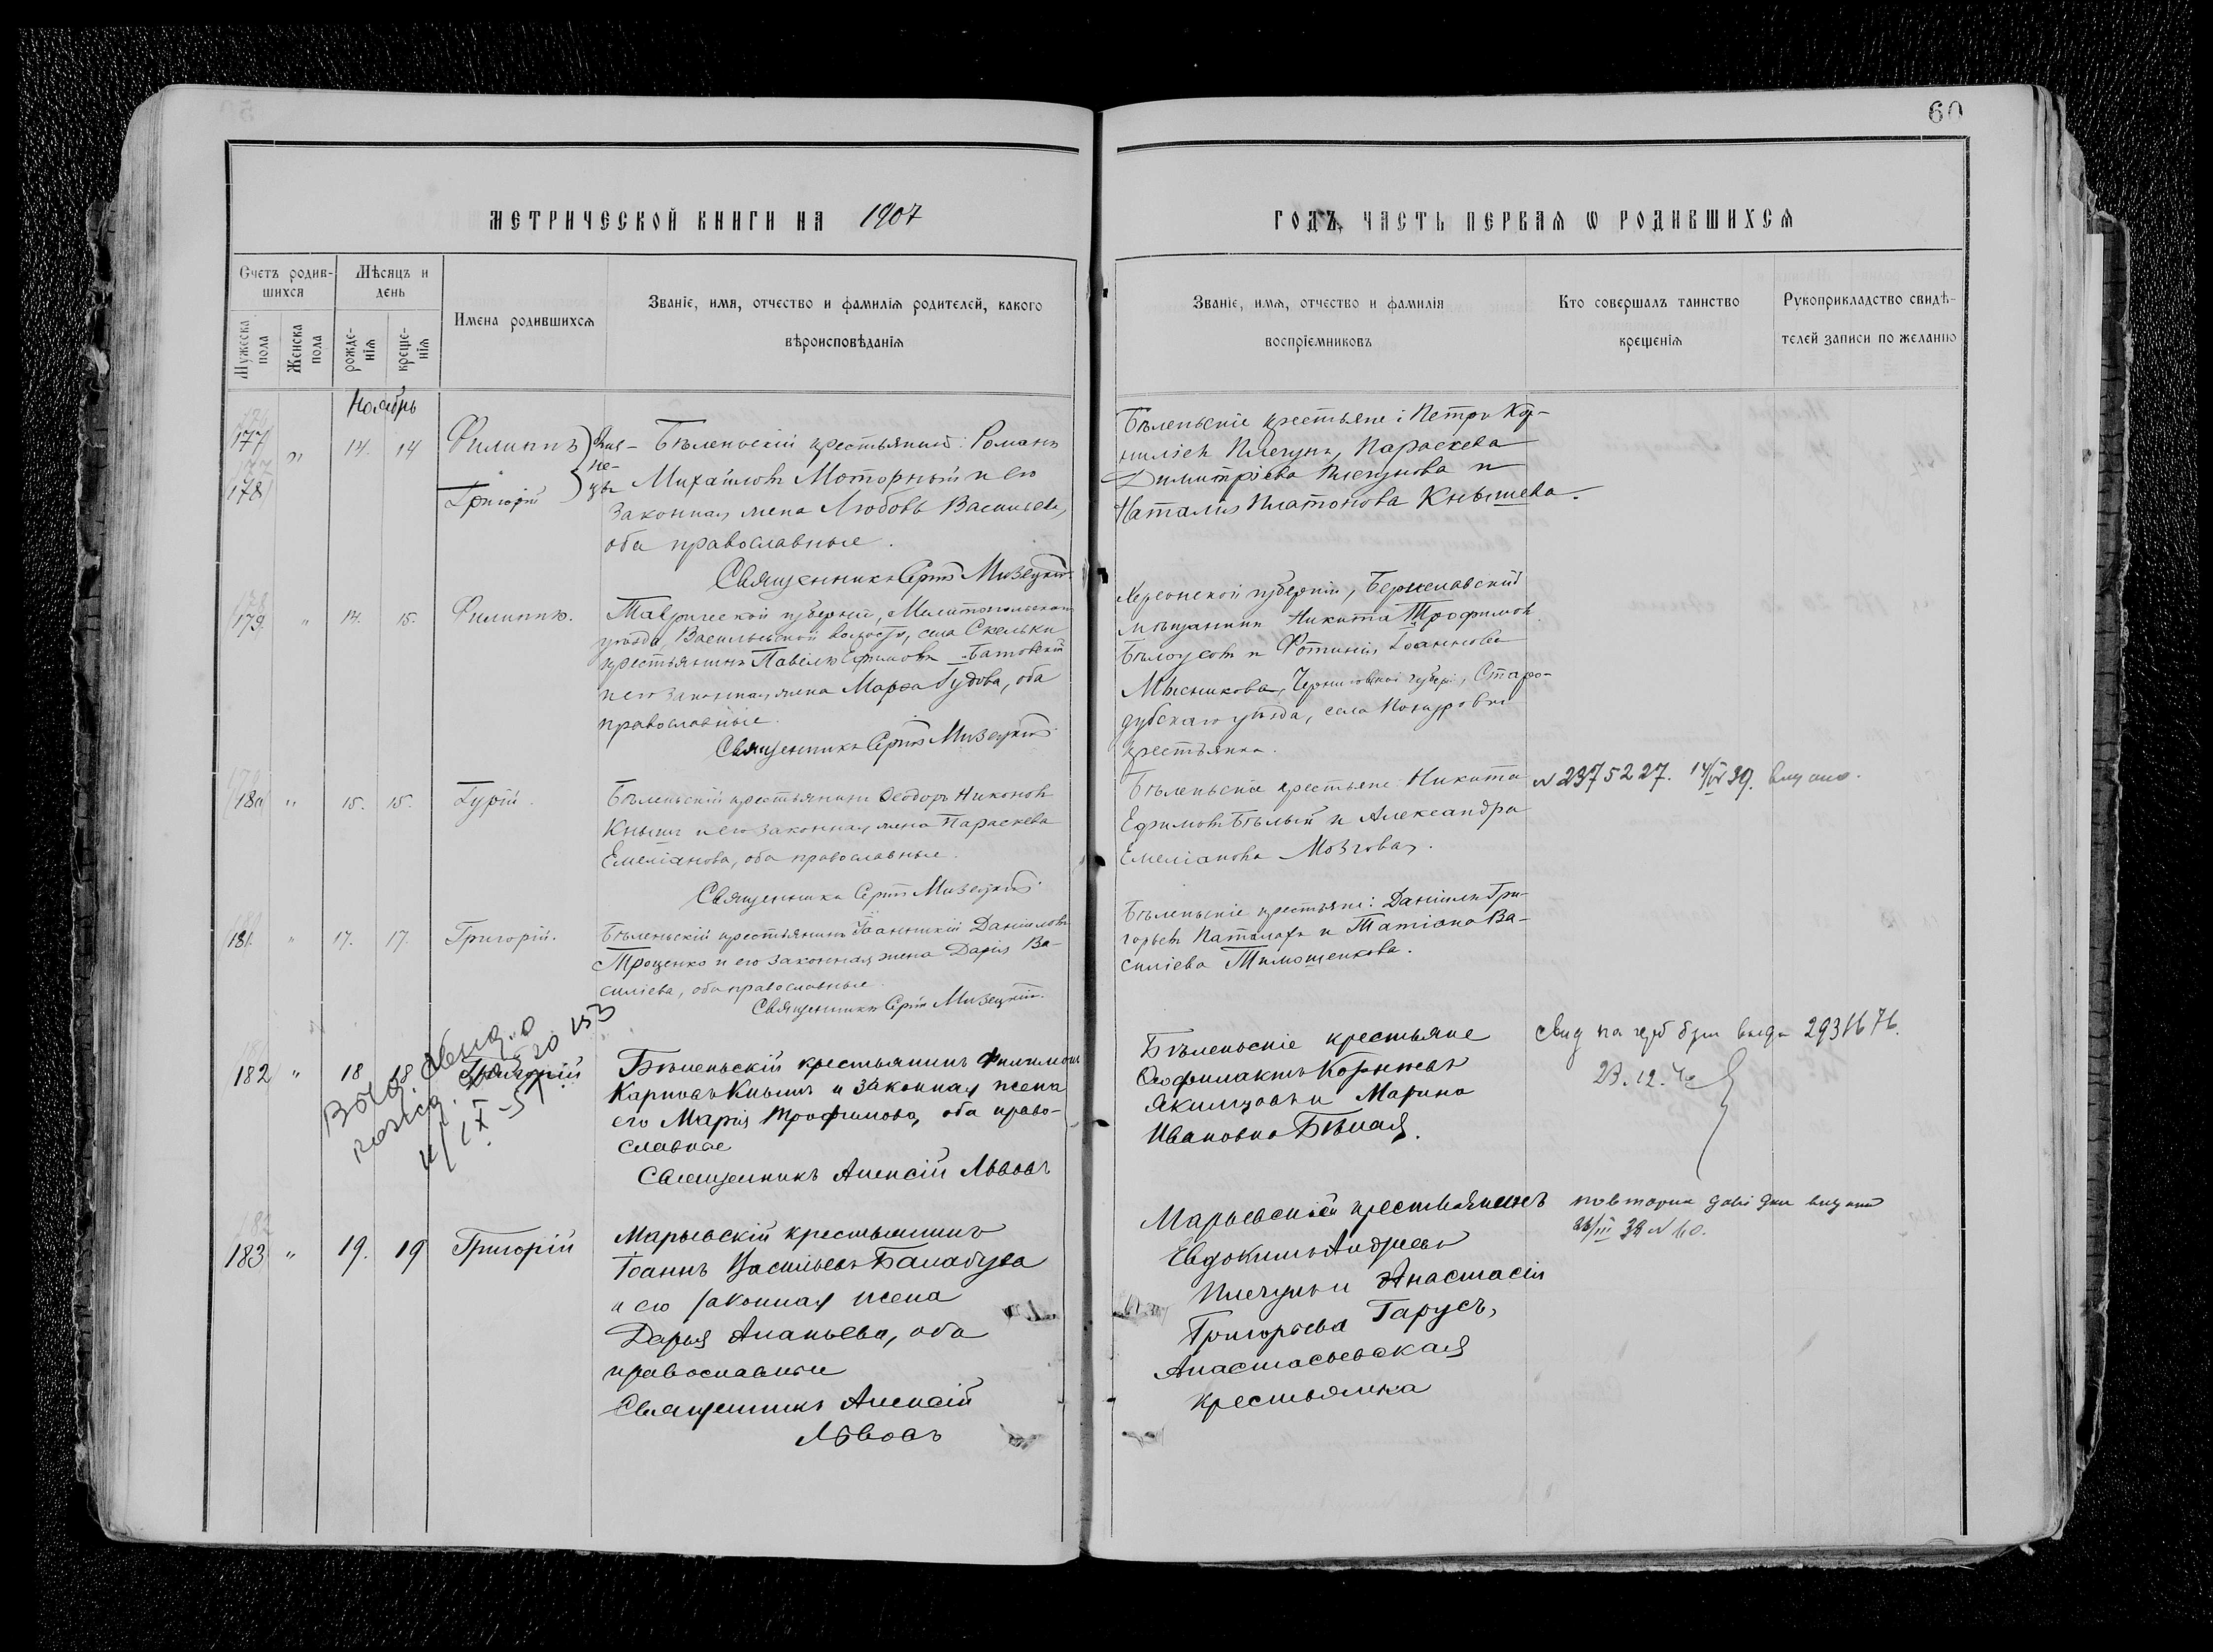 60
МЕТРИЧЕСКОЙ КНИГИ НА 1907
ГОДЪ, ЧАСТЬ ПЕРВАЯ Ѡ РОДИВШИХСЯ
Счетъ родив-
шихся
Мѣсяцъ и
день
Имена родившихся
Званіе, имя, отчество и фамилія родителей, какого
вѣроисповѣданія
Мужеска
пола
Женска
пола
рожде-
нія
креще-
нія
Званіе, имя, отчество и фамилія
воспріемниковъ
Кто совершалъ таинство
крещенія
Рукоприкладство свидѣ-
телей записи по желанію
Ноябрь
177
178
14. 14
Филиппъ
Григорій
Бѣленьскій крестьянинъ: Романъ
Михайловъ Моторный и его
законная жена Любовь Васильева,
оба православные.
Священникъ Сергій Мизецкій
Бѣленьскіе крестьяне: Петръ Кор-
нилієвъ Плечунъ, Параскева
Димитріева Плечунова и
Наталія Платонова Кнышева.
179 " 14. 15.
Филиппъ.
Таврической губерніи, Мелитопольскаго
уѣзда Васильевской волости, села Скельки
крестьянинъ Павелъ Ефимовъ Батовскій
и его законная жена Марѳа Гудова, оба
православные.
Священникъ Сергій Мизецкій
Херсонской губерніи, Бериславскій
мѣщанинъ Никита Трофимовъ
Бѣлоусовъ и Фотинія Іоаннова
Мысникова, Черниговской губер., Старо-
дубскаго уѣзда, села Понуровки
крестьянка.
180 " 15. 15.
Гурій.
Бѣленьскій крестьянинъ Ѳеодоръ Никоновъ
Кнышъ и его законная жена Параскева
Емеліанова, оба православные.
Священникъ Сергій Мизецкій
Бѣленьскіе крестьяне: Никита
Ефимовъ Бѣлый и Александра
Емеліанова Мозговая.
N 2375227. 14/IV 39.
181 " 17. 17.
Григорій.
Бѣленьскій крестьянинъ Іоанникій Даніиловъ
Троценко и его законная жена Дарія Ва-
силіева, оба православные.
Священникъ Сергій Мизецкій.
Бѣленьскіе крестьяне: Даніилъ Гри-
горьевъ Паталаха и Татіана Ва-
силіева Тимошенкова.
182 " 18 18
Григорій
Бѣленьскій крестьянинъ Филимонъ
Карповъ Кнышъ и законная жена
его Марія Трофимова, оба право-
славные
Священникъ Алексій Львовъ
Бѣленьскіе крестьяне
Ѳеофилактъ Корнѣевъ
Якимцовъ и Марина
Ивановна Бѣлая.
2931676.
23.12.40
183 " 19. 19
Григорій
Марьевскій крестьянинъ
Іоаннъ Васильевъ Балабуха
и его законная жена
Дарья Ананьева, оба
православные
Священникъ Алексій
Львовъ
Марьевскій крестьянинъ
Евдокимъ Андреевъ
Плечунъ и Анастасія
Григорьева Гарусъ,
Анастасьевская
крестьянка